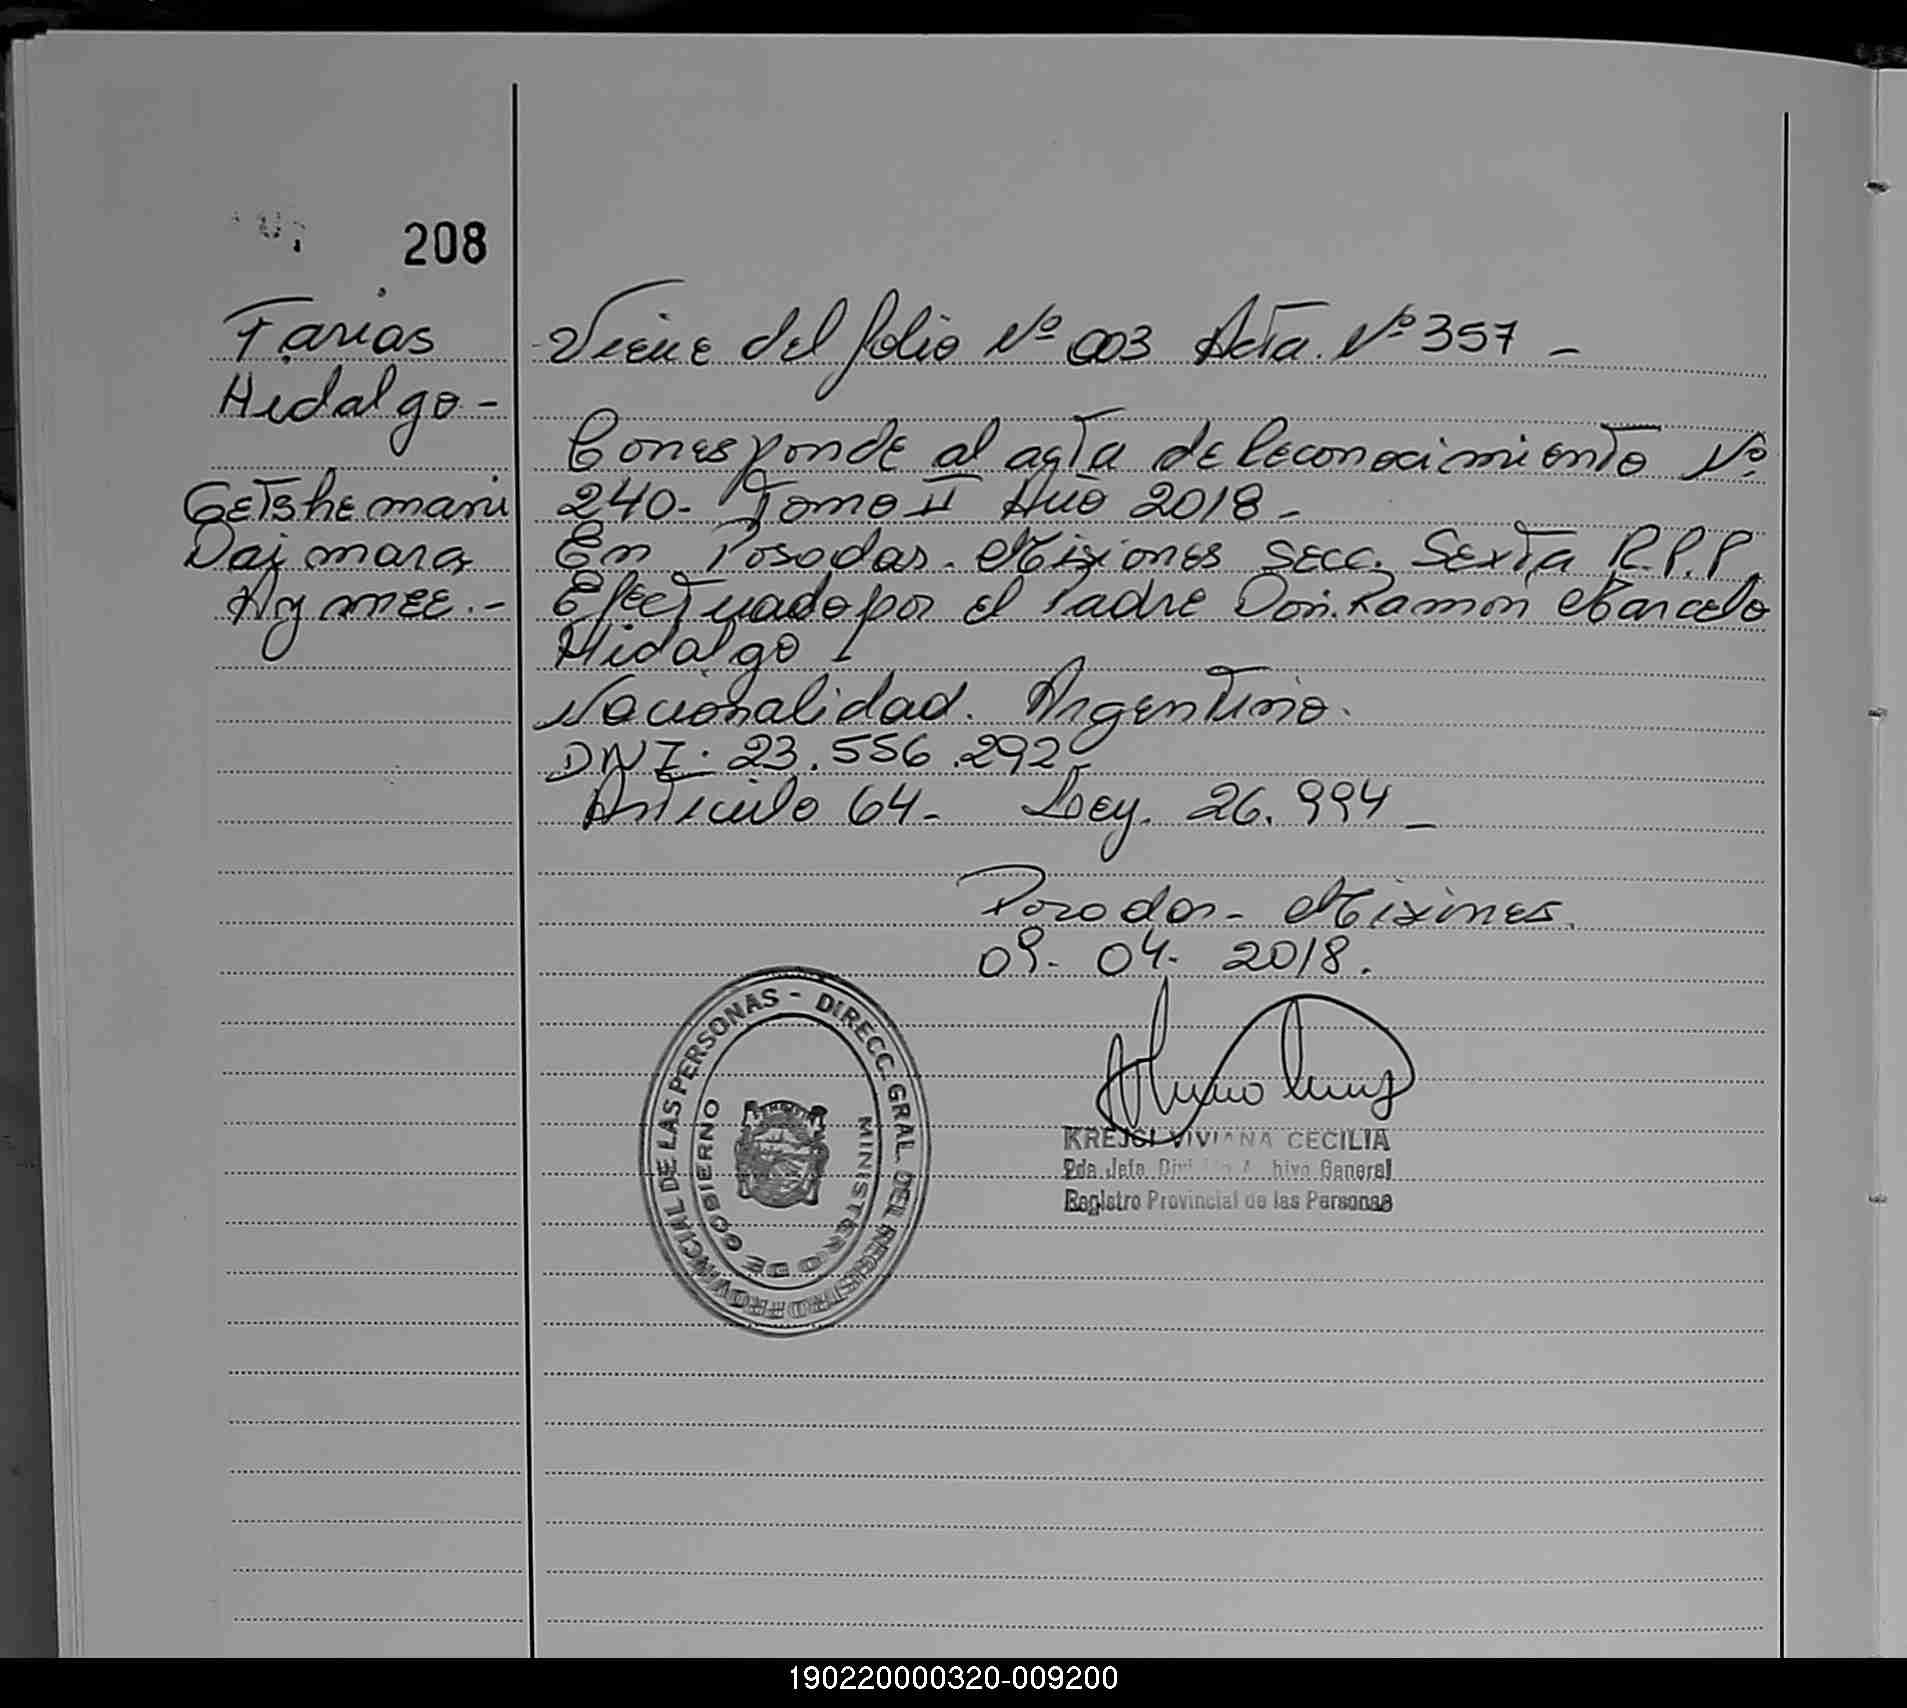 208
Farias
Hidalgo -
Getshemani
Daimara
Aymee.-
Viene del folio Nº 003 Acta. Nº 357 -
Corresponde al acta de Reconocimiento Nº
240- Tomo II Año 2018 -
En Posadas. Misiones secc. Sexta R.P.P.
Efectuado por el Padre Don. Ramon Marcelo
Hidalgo -
Nacionalidad. Argentino.
DNI. 23.556.292
Articulo 64- Ley. 26.994 -
Posadas - Misiones.
09- 04- 2018.
DIRECC. GRAL. DEL REGISTRO PROVINCIAL DE LAS PERSONAS -
MINISTERIO DE GOBIERNO
KREJCI VIVIANA CECILIA
Jefa División Archivo General
Registro Provincial de las Personas
190220000320-009200